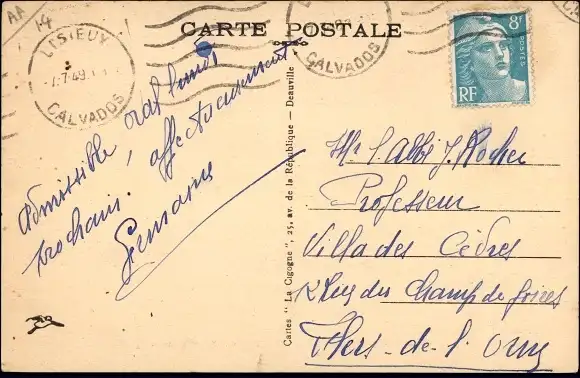 CARTE POSTALE
LISIEUX
7.7.49
CALVADOS
CALVADOS
8F
POSTES
RF
Admissible, oral lundi
prochain. affectueusement
Germaine
Cartes "La Cigogne", 25, av. de la République — Deauville
Mr l'abbé J. Rocher
Professeur
Villa des Cèdres
Rue du Champ de foires
Flers-de-l'Orne